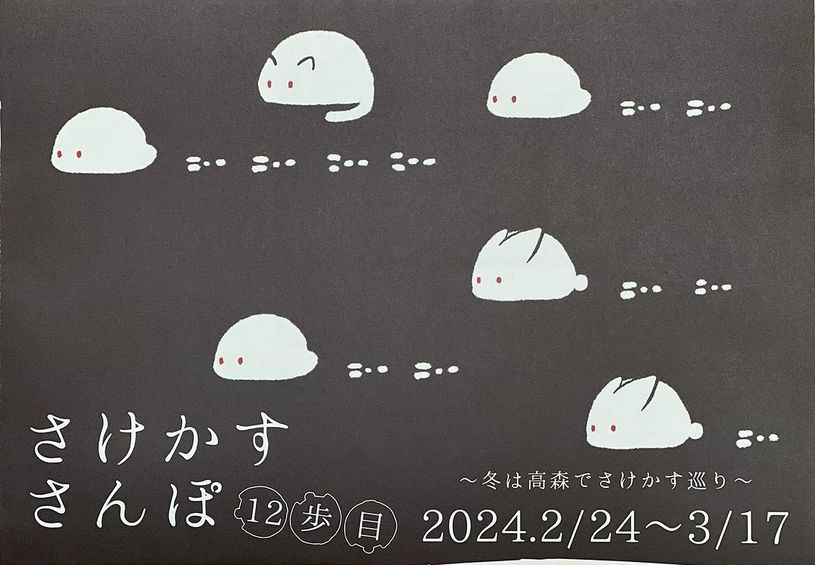 さけかす
さんぽ 12歩目
～冬は高森でさけかす巡り～
2024.2/24～3/17